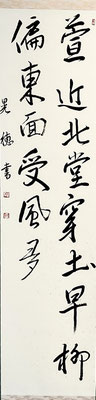 萱近北堂穿土早柳
偏東面受風多
晃穂書